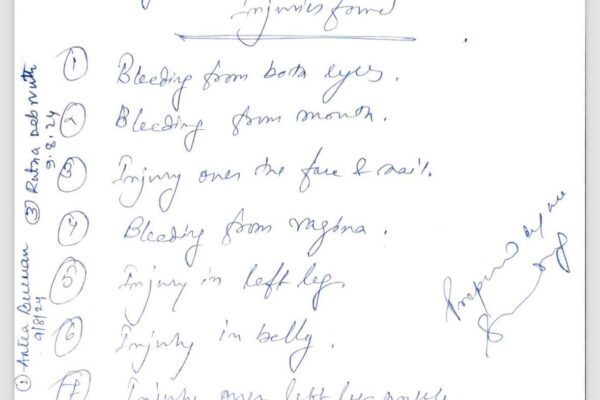 Injuries found
① Bleeding from both eyes.
② Bleeding from mouth.
③ Injury over the face & nail.
④ Bleeding from vagina.
⑤ Injury in left leg.
⑥ Injury in belly.
⑦ Injury over left leg ankle.
① Antra Burman
9/8/24
③ Ratna Debnath
9.8.24
Prepared by me